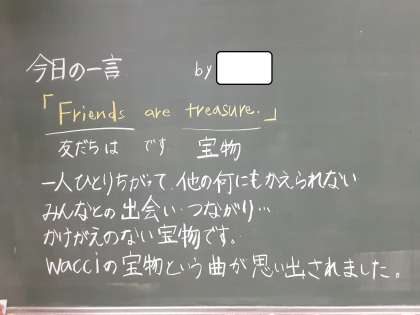 今日の一言 by
「Friends are treasure.」
友だちは です 宝物
一人ひとりちがって、他の何にもかえられない
みんなとの出会い・つながり…
かけがえのない宝物です。
wacciの宝物という曲が思い出されました。